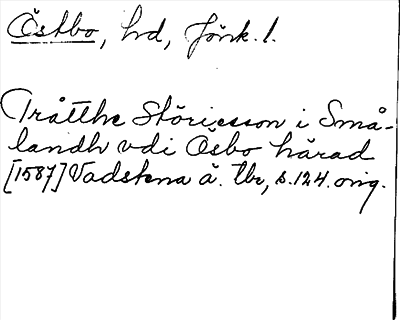 Östbo, hd, Jönk. l.
Tråtthe Störiesson i Små-
landh vdi Ösbo härad
[1587] Vadstena ä. tbr, s. 124. orig.